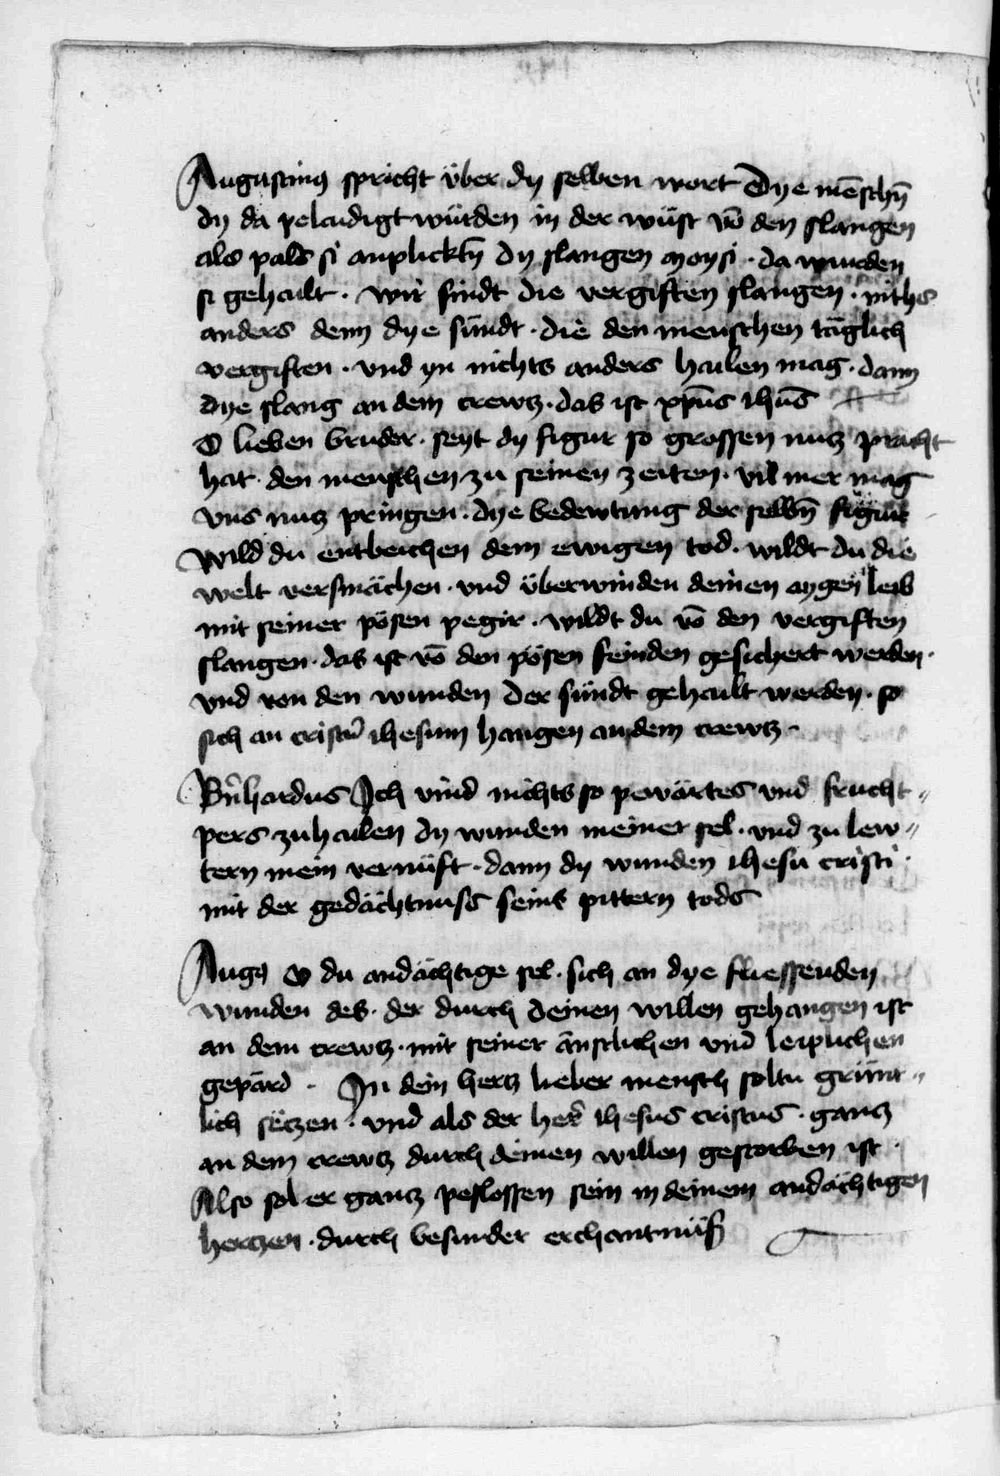 Augustinꝰ spricht über dy selben wort Dye mēschn̄
dy da pelaidigt würden in der wüst vō den slangen
als pald si anplicktn̄ dy slangen moysi · da wurden
si gehailt · Wir sindt die vergiften slangen · niths
anders denn dye sündt · die den menschen täglich
vergiften · vnd yn nichts anders hailen mag · dann
dye slang an dem crewtz · das ist xpūs ihūs
O lieben bruder · seyt dy figur so grossen nutz pracht
hat · den menschen zu seinen zeiten · vil mer mag
vns nutz pringen · dye bedewtung der selbn̄ figur
Wild du entbeichen dem ewigen tod · wildt du die
welt versmächen · vnd überwinden deinen aygen leib
mit seiner pösen pegir · wildt du vō den vergiften
slangen · das ist vō den pösen feinden gesichert werden ·
vnd von den wunden der sündt gehailt werden · so
sich an cristū ihesum hangen an dem crewtz ·
Bn̄hardus Ich vind nichts so pewärtes vnd frucht〃
pers zu hailen dy wunden meiner sel · vnd zu lew〃
tern mein vernüft · dann dy wunden ihesu cristi ·
mit der gedächtnuss seins pittern tods
Augꝰ O du andächtige sel · sich an dye fliessenden
wunden des · der durch deinen willen gehangen ist
an dem crewtz · mit seiner änstlichen vnd leiplichen
gepärd · In dein hertz lieber mensch soltu grünt〃
lich setzen · vnd als der her̄ ihesus cristus · gantz
an dem crewtz durch deinen willen gestorben ist ·
Also sol er gantz peslossen sein in deinem andächtigen
hertzen · durch besunder erchantnüß